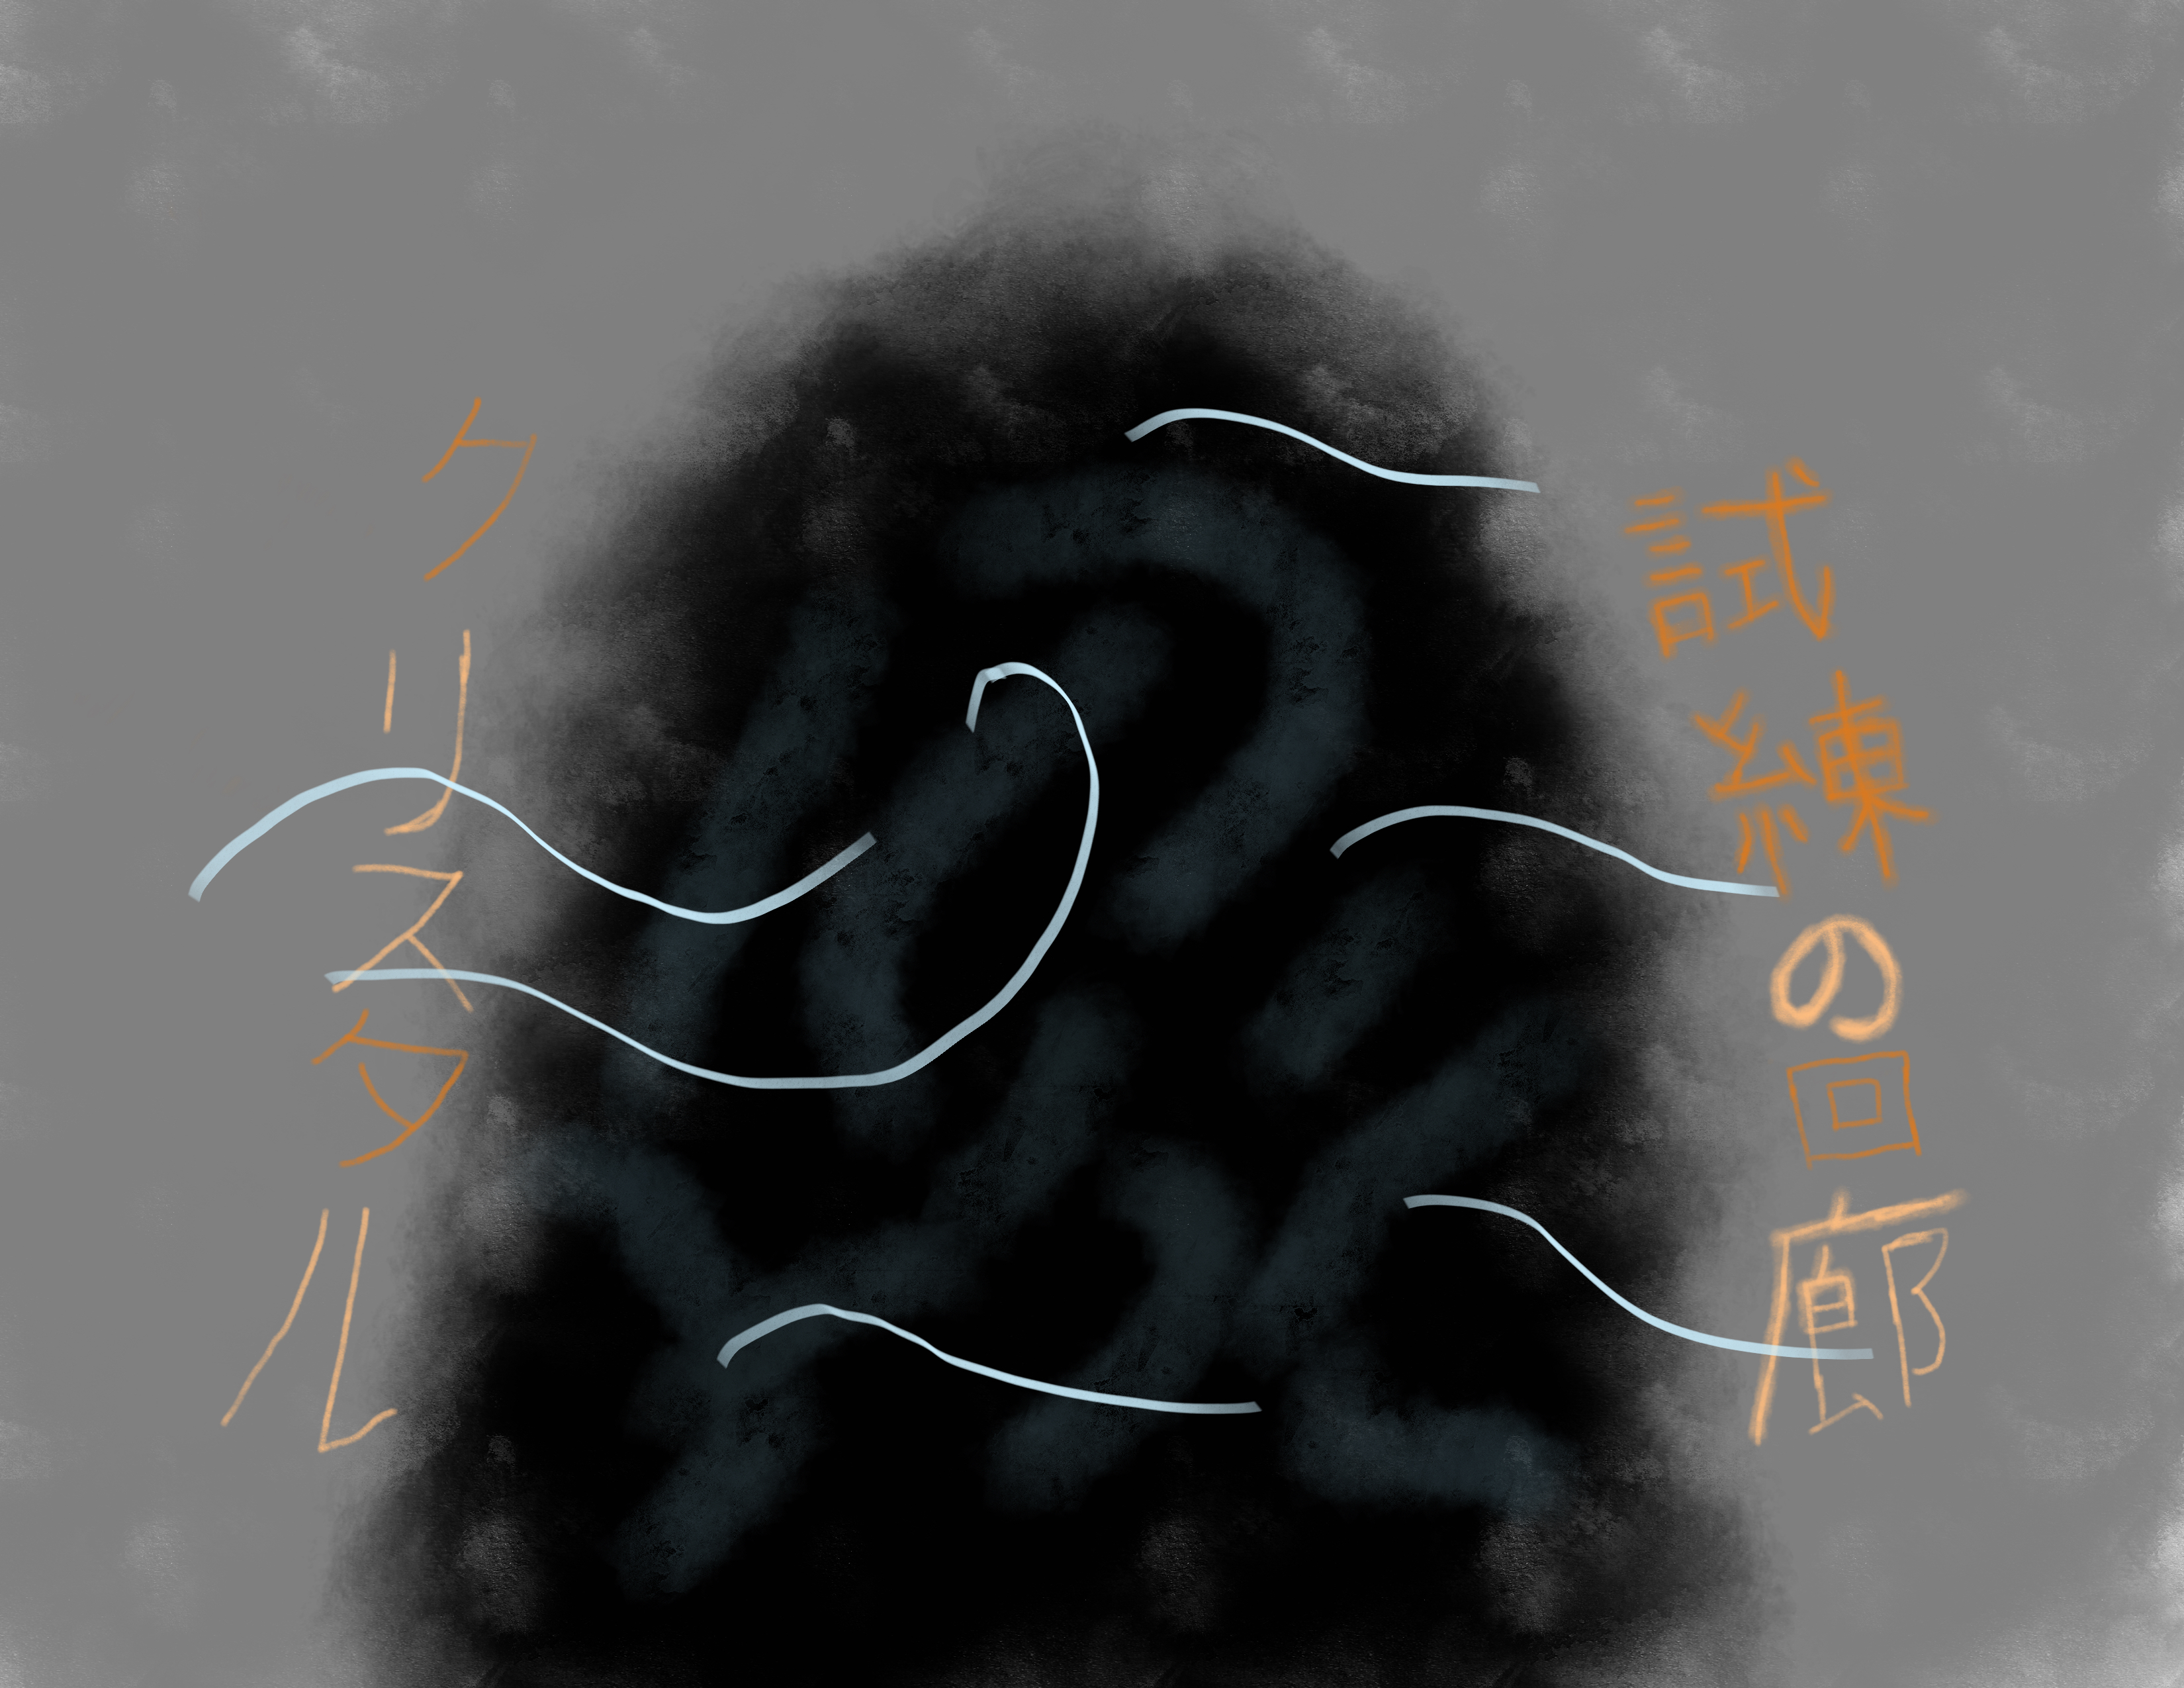 試練の回廊
クリスタル